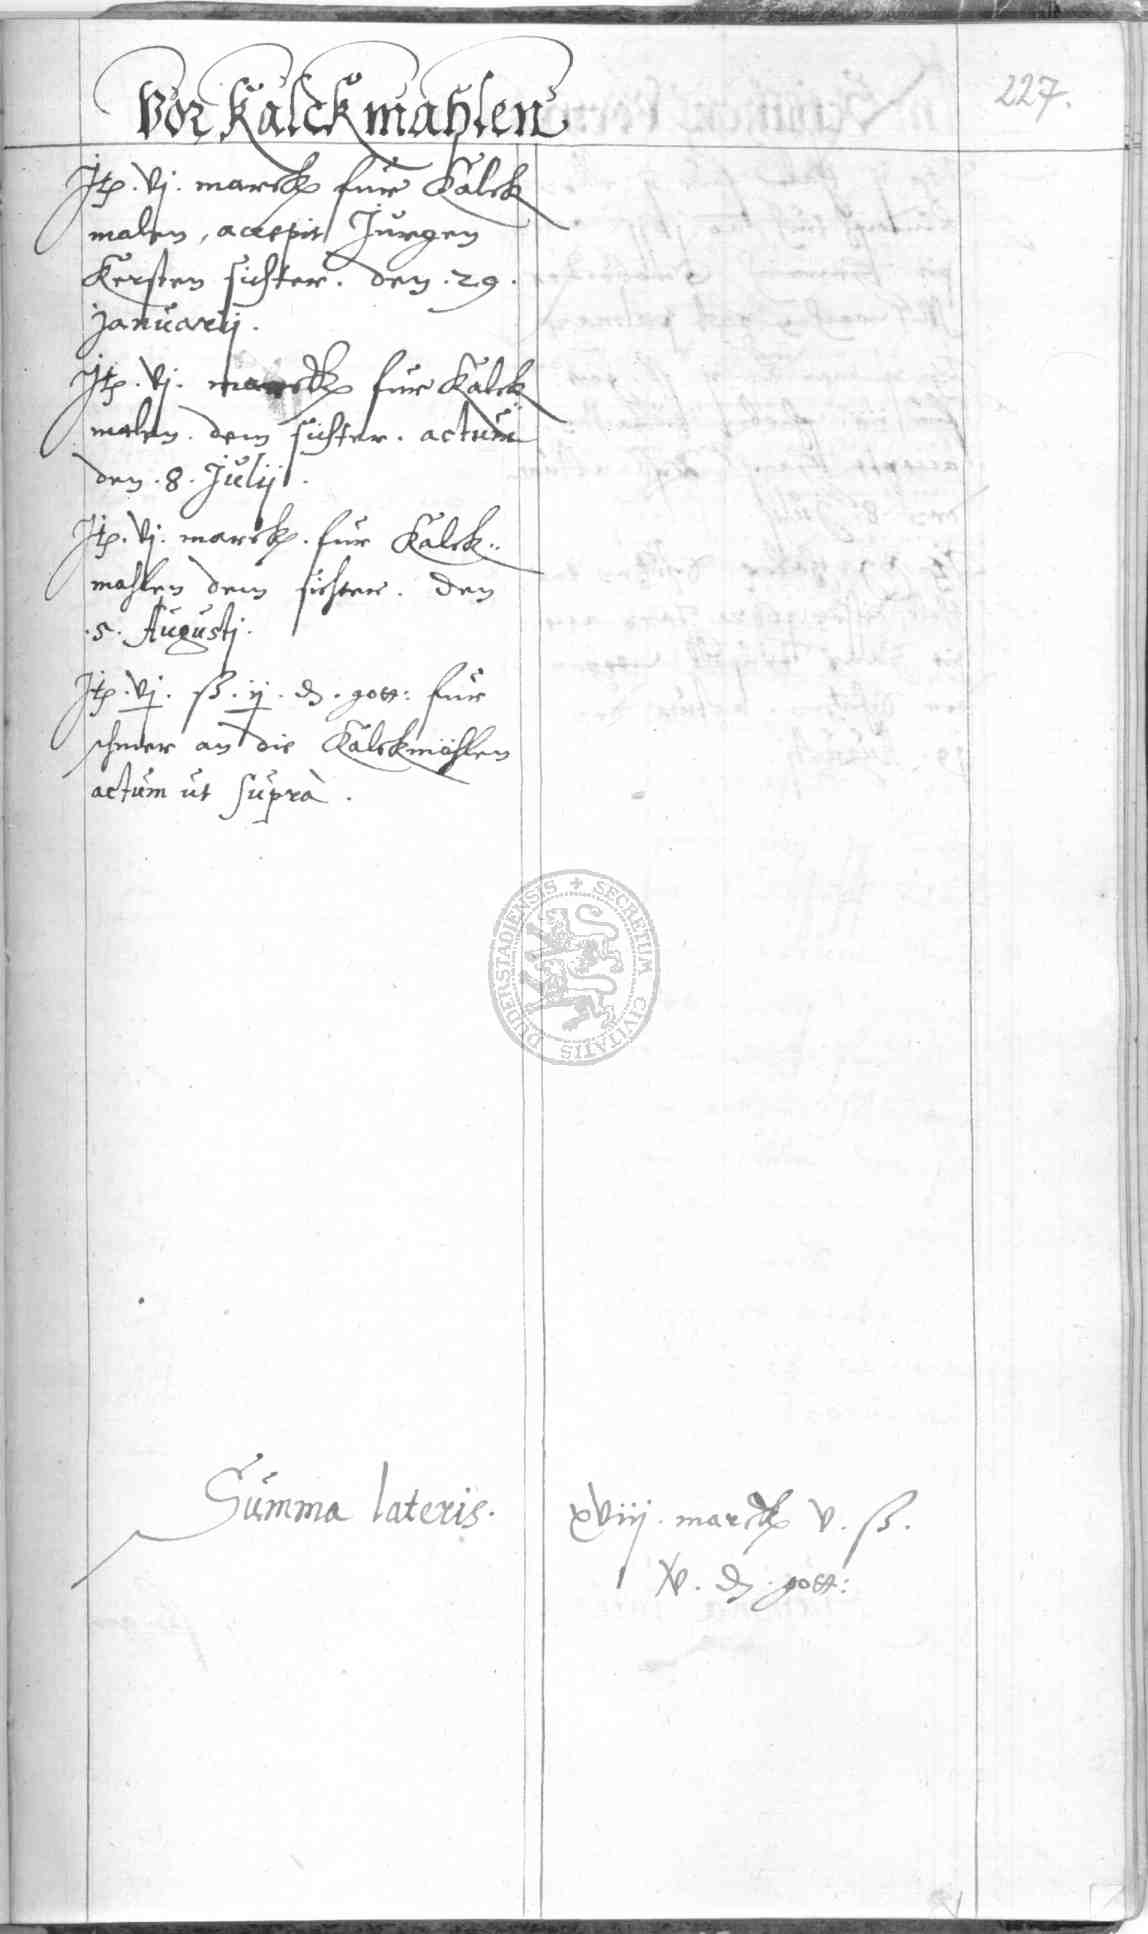 Vor Kalckmahlen
227.
Jtp. vj. marck für Kalck
malen, accepit Jurgen
Kersten sichter. den .29.
Januarij.
Jtp. vj. marck für Kalck
malen. dem sichter. actum
den .8. Julij.
Jtp. vj. marck. für Kalck..
mahlen dem sichter. den
.5. Augustj.
Jtp. vj. ß. ij. d. gott: für
schmer an die Kalckmöhlen
actum ut suprà.
DUDERSTADIENSIS + SECRETUM CIVITATIS
Summa lateris. xviij. marck v. ß.
d. gott: